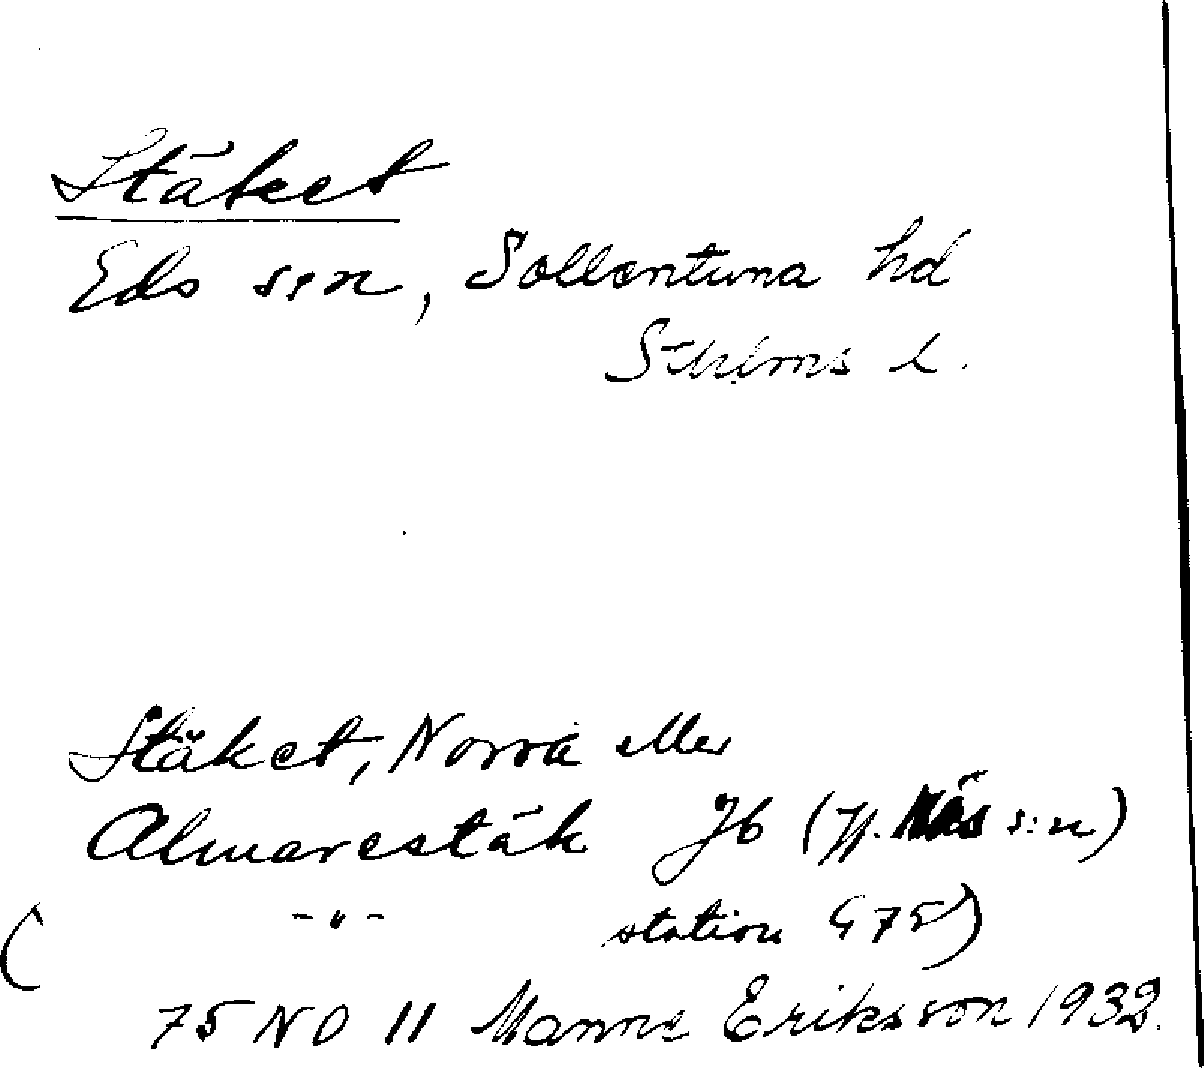 Stäket
Eds s:n, Sollentuna hd
Sthlms l.
Stäket, Norra eller
Almarestäk Jb (Jf. Näs s:n)
( -"- station G 75)
75 NO 11 Manne Eriksson 1932.